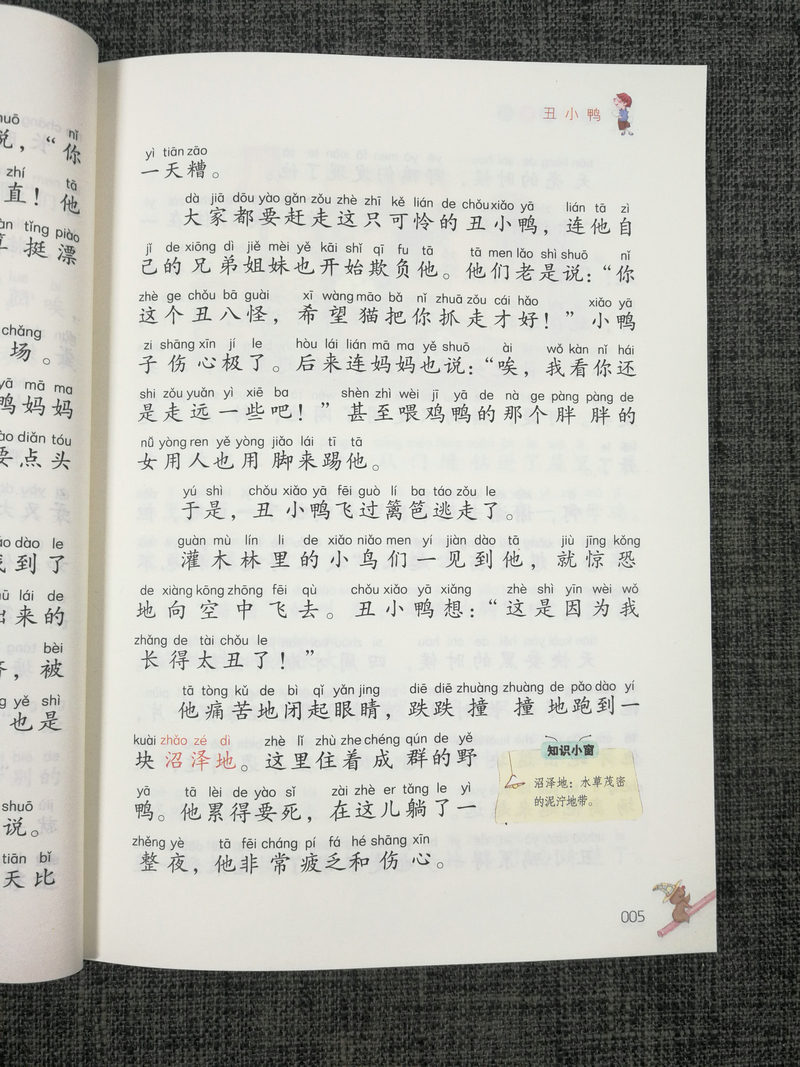 huō nǐ
说，“你
zhí tā
直！他
tǐng piào
挺漂
chǎng
场。
yā mā ma
鸭妈妈
diǎn tóu
要点头
dào le
找到了
lái de
出来的
bèi
，被
yě shì
也是
shuō
说。
tiān bǐ
天比
丑小鸭
yì tiān zāo
一天糟。
dà jiā dōu yào gǎn zǒu zhè zhī kě lián de chǒu xiǎo yā lián tā zì
大家都要赶走这只可怜的丑小鸭，连他自
jǐ de xiōng dì jiě mèi yě kāi shǐ qī fu tā tā men lǎo shì shuō nǐ
己的兄弟姐妹也开始欺负他。他们老是说：“你
zhè ge chǒu bā guài xī wàng māo bǎ nǐ zhuā zǒu cái hǎo xiǎo yā
这个丑八怪，希望猫把你抓走才好！”小鸭
zi shāng xīn jí le hòu lái lián mā ma yě shuō ài wǒ kàn nǐ hái
子伤心极了。后来连妈妈也说：“唉，我看你还
shi zǒu yuǎn yì xiē ba shèn zhì wèi jī yā de nà ge pàng pàng de
是走远一些吧！”甚至喂鸡鸭的那个胖胖的
nǚ yòng ren yě yòng jiǎo lái tī tā
女用人也用脚来踢他。
yú shì chǒu xiǎo yā fēi guò lí ba táo zǒu le
于是，丑小鸭飞过篱笆逃走了。
guàn mù lín li de xiǎo niǎo men yí jiàn dào tā jiù jīng kǒng
灌木林里的小鸟们一见到他，就惊恐
de xiàng kōng zhōng fēi qù chǒu xiǎo yā xiǎng zhè shì yīn wèi wǒ
地向空中飞去。丑小鸭想：“这是因为我
zhǎng de tài chǒu le
长得太丑了！”
tā tòng kǔ de bì qǐ yǎn jing diē diē zhuàng zhuàng de pǎo dào yí
他痛苦地闭起眼睛，跌跌撞撞地跑到一
kuài zhǎo zé dì zhè lǐ zhù zhe chéng qún de yě
块沼泽地。这里住着成群的野
yā tā lèi de yào sǐ zài zhè er tǎng le yì
鸭。他累得要死，在这儿躺了一
zhěng yè tā fēi cháng pí fá hé shāng xīn
整夜，他非常疲乏和伤心。
知识小窗
沼泽地：水草茂密
的泥泞地带。
005